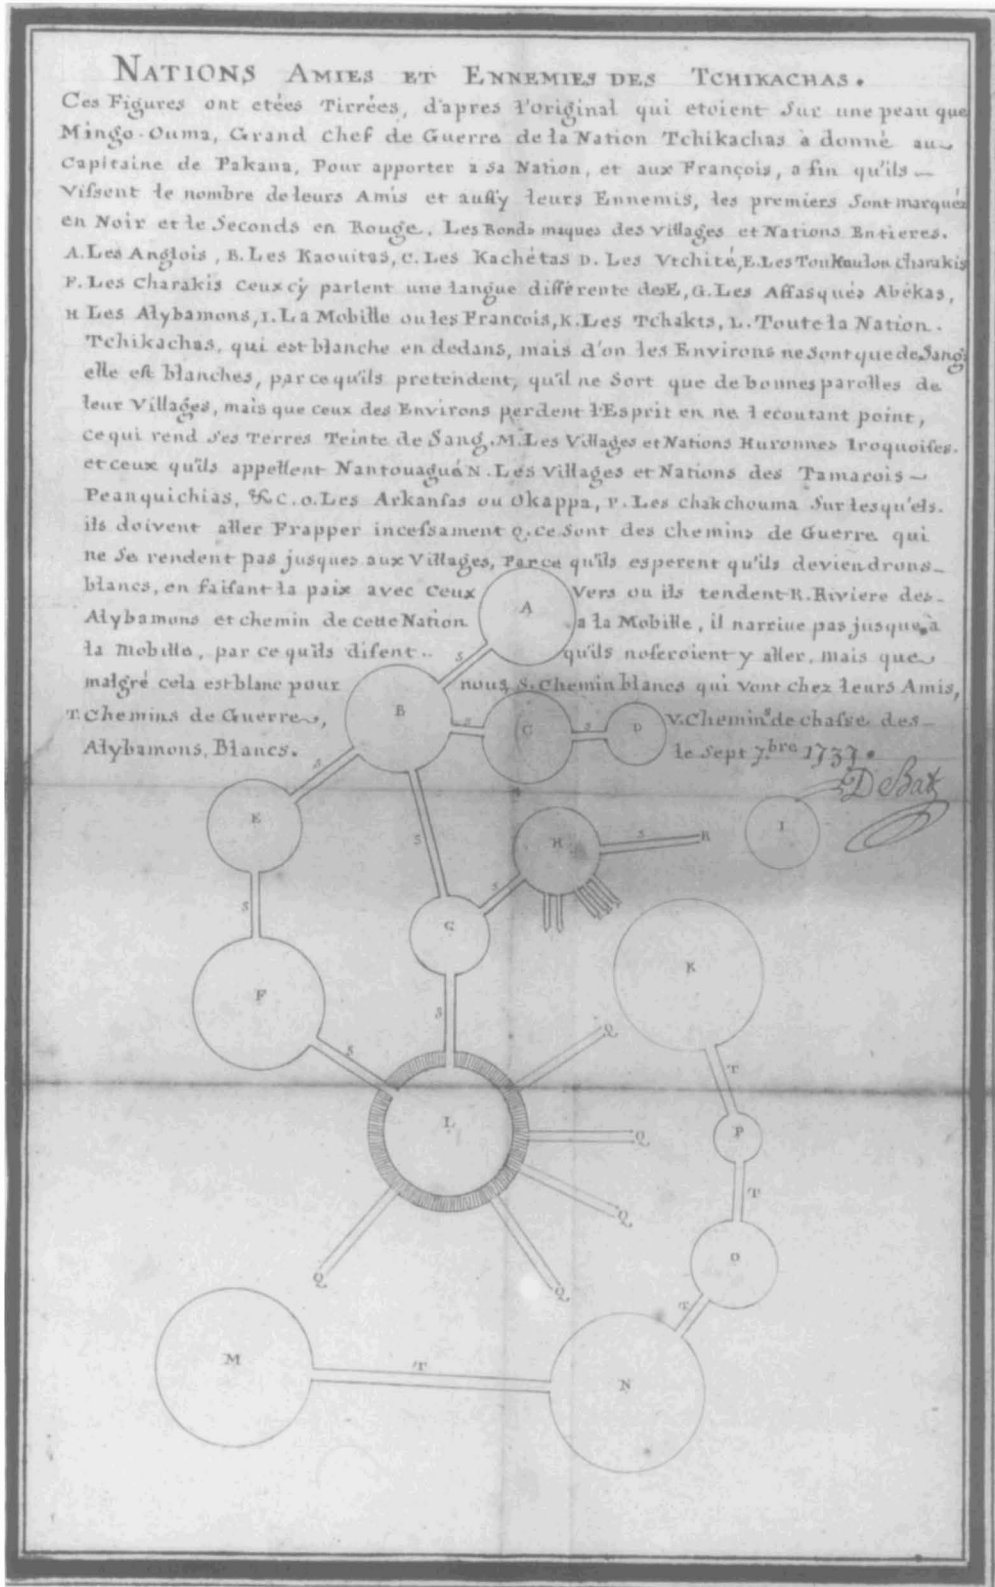 NATIONS AMIES ET ENNEMIES DES TCHIKACHAS.
Ces Figures ont etées Tirrées, d'apres l'original qui etoient Sur une peau que
Mingo-Ouma, Grand Chef de Guerre de la Nation Tchikachas a donné au
Capitaine de Pakana, Pour apporter a Sa Nation, et aux François, a fin qu'ils
Vissent le nombre de leurs Amis et aussy leurs Ennemis, les premiers Sont marqués
en Noir et le Seconds en Rouge. Les Ronds maques des Villages et Nations Entieres.
A. Les Anglois, B. Les Kaouitas, C. Les Kachétas D. Les Vtchité, E. Les Toukaulou Charakis
F. Les Charakis Ceux cy parlent une langue différente des E, G. Les Affasqués Abékas,
H Les Alybamons, I. La Mobille ou les Francois, K. Les Tchakts, L. Toute la Nation.
Tchikachas, qui est blanche en dedans, mais d'on les Environs ne Sont que de Sang;
elle est blanches, par ce qu'ils pretendent, qu'il ne Sort que de bonnes parolles de
leur Villages, mais que ceux des Environs perdent l'Esprit en ne l ecoutant point,
ce qui rend Ses Terres Teinte de Sang. M. Les Villages et Nations Huronnes Iroquoises.
et ceux qu'ils appellent Nantouagué N. Les Villages et Nations des Tamarois
Peanquichias, &c. O. Les Arkansas ou Okappa, P. Les Chakchouma Sur lesqu'els.
ils doivent aller Frapper incessament Q. Ce Sont des Chemins de Guerre qui
ne Se rendent pas jusques aux Villages, Parce qu'ils esperent qu'ils deviendrons
blancs, en faisant la paix avec Ceux Vers ou ils tendent R. Riviere des
Alybamons et chemin de cette Nation a la Mobille, il narrive pas jusque a
la Mobille, par ce qu'ils disent.. qu'ils noseroient y aller, mais que
malgré cela est blanc pour nous S. Chemin blancs qui vont chez leurs Amis,
T. Chemins de Guerre, V. Chemins de chasse des
Alybamons, Blancs. le Sept 7.bre 1737.
De Batz
A
S
B
S
C
S
D
S
E
S
H
S
R
I
S
S
G
F
K
S
S
Q
T
L
Q
P
Q
T
Q
Q
O
T
M
T
N